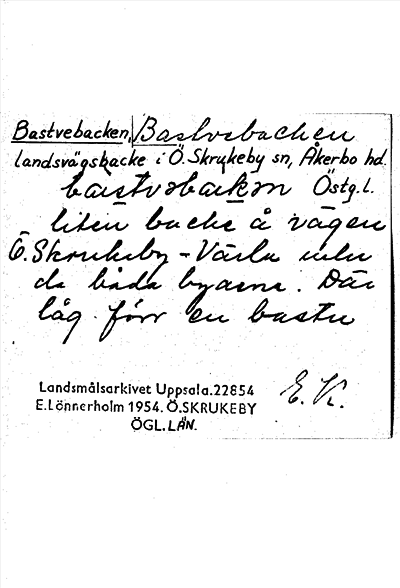 Bastvebacken, Bastvebacken
landsvägsbacke i Ö. Skrukeby sn, Åkerbo hd.
Östg. l.
liten backe å vägen
Ö. Skrukeby - Värla mellan
de båda byarna. Där
låg förr en bastu
Landsmålsarkivet Uppsala. 22854
E. Lönnerholm 1954. Ö. SKRUKEBY
ÖGL. LÄN.
E. K.